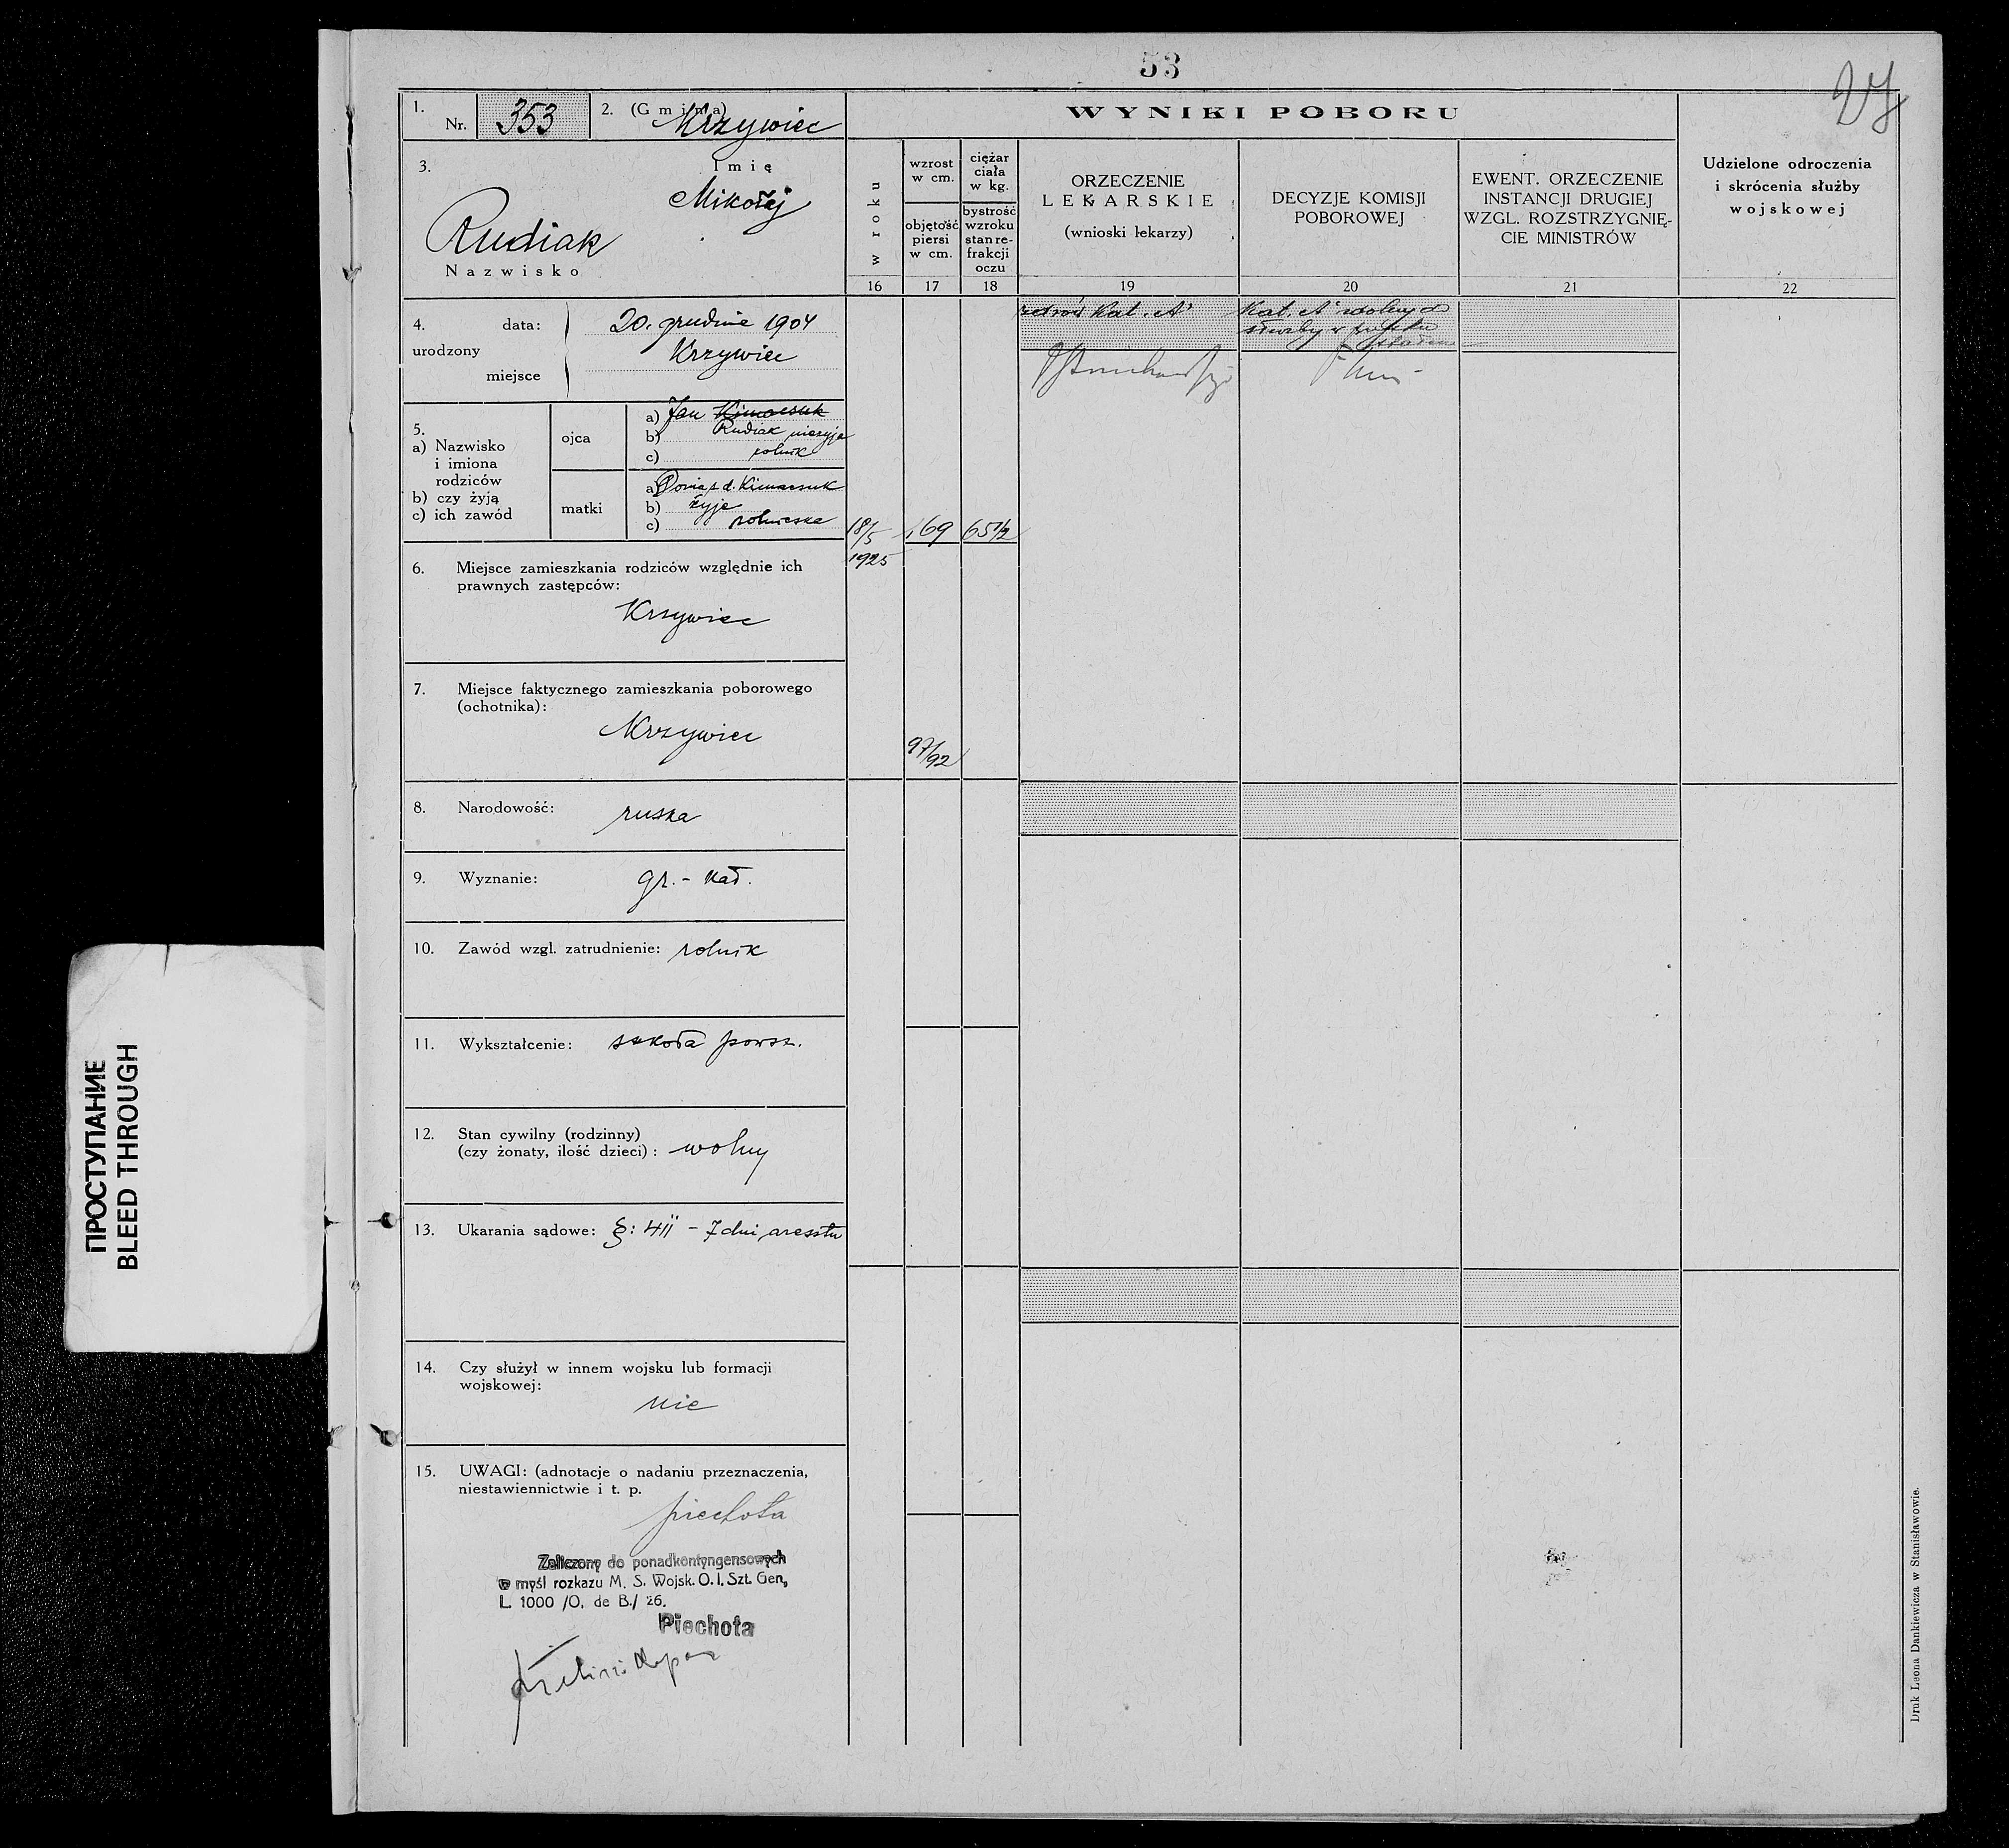 53
1. Nr. 353
2. (Gmina) Krzywiec
WYNIKI POBORU
3. Imię
Mikołaj
Rudiak
Nazwisko
w roku
wzrost
w cm.
objętość
piersi
w cm.
ciężar
ciała
w kg.
bystrość
wzroku
stan re-
frakcji
oczu
ORZECZENIE
LEKARSKIE
(wnioski lekarzy)
DECYZJE KOMISJI
POBOROWEJ
EWENT. ORZECZENIE
INSTANCJI DRUGIEJ
WZGL. ROZSTRZYGNIĘ-
CIE MINISTRÓW
Udzielone odroczenia
i skrócenia służby
wojskowej
16 17 18 19 20 21 22
4. urodzony
data: 20. grudnia 1904
miejsce Krzywiec
zdrów Kat. A
Kat. A zdolny do
służby w
5.
a) Nazwisko
i imiona
rodziców
b) czy żyją
c) ich zawód
ojca
a) Jan Kimaczuk
b) Rudiak nieżyje
c) rolnik
matki
a) z d. Kimaczuk
b) żyje
c) rolniczka
18/5
1925
169
65 1/2
97/92
6. Miejsce zamieszkania rodziców względnie ich
prawnych zastępców:
Krzywiec
7. Miejsce faktycznego zamieszkania poborowego
(ochotnika):
Krzywiec
8. Narodowość: ruska
9. Wyznanie: gr.-kat.
10. Zawód wzgl. zatrudnienie: rolnik
11. Wykształcenie: szkoła powsz.
12. Stan cywilny (rodzinny)
(czy żonaty, ilość dzieci): wolny
13. Ukarania sądowe: §: 411 – 7 dni aresztu
14. Czy służył w innem wojsku lub formacji
wojskowej:
nie
15. UWAGI: (adnotacje o nadaniu przeznaczenia,
niestawiennictwie i t. p.
piechota
Zaliczony do ponadkontyngensowych
w myśl rozkazu M. S. Wojsk. O. I. Szt. Gen,
L. 1000 /O. de B./ 26.
Piechota
Druk Leona Dankiewicza w Stanisławowie.
ПРОСТУПАНИЕ
BLEED THROUGH